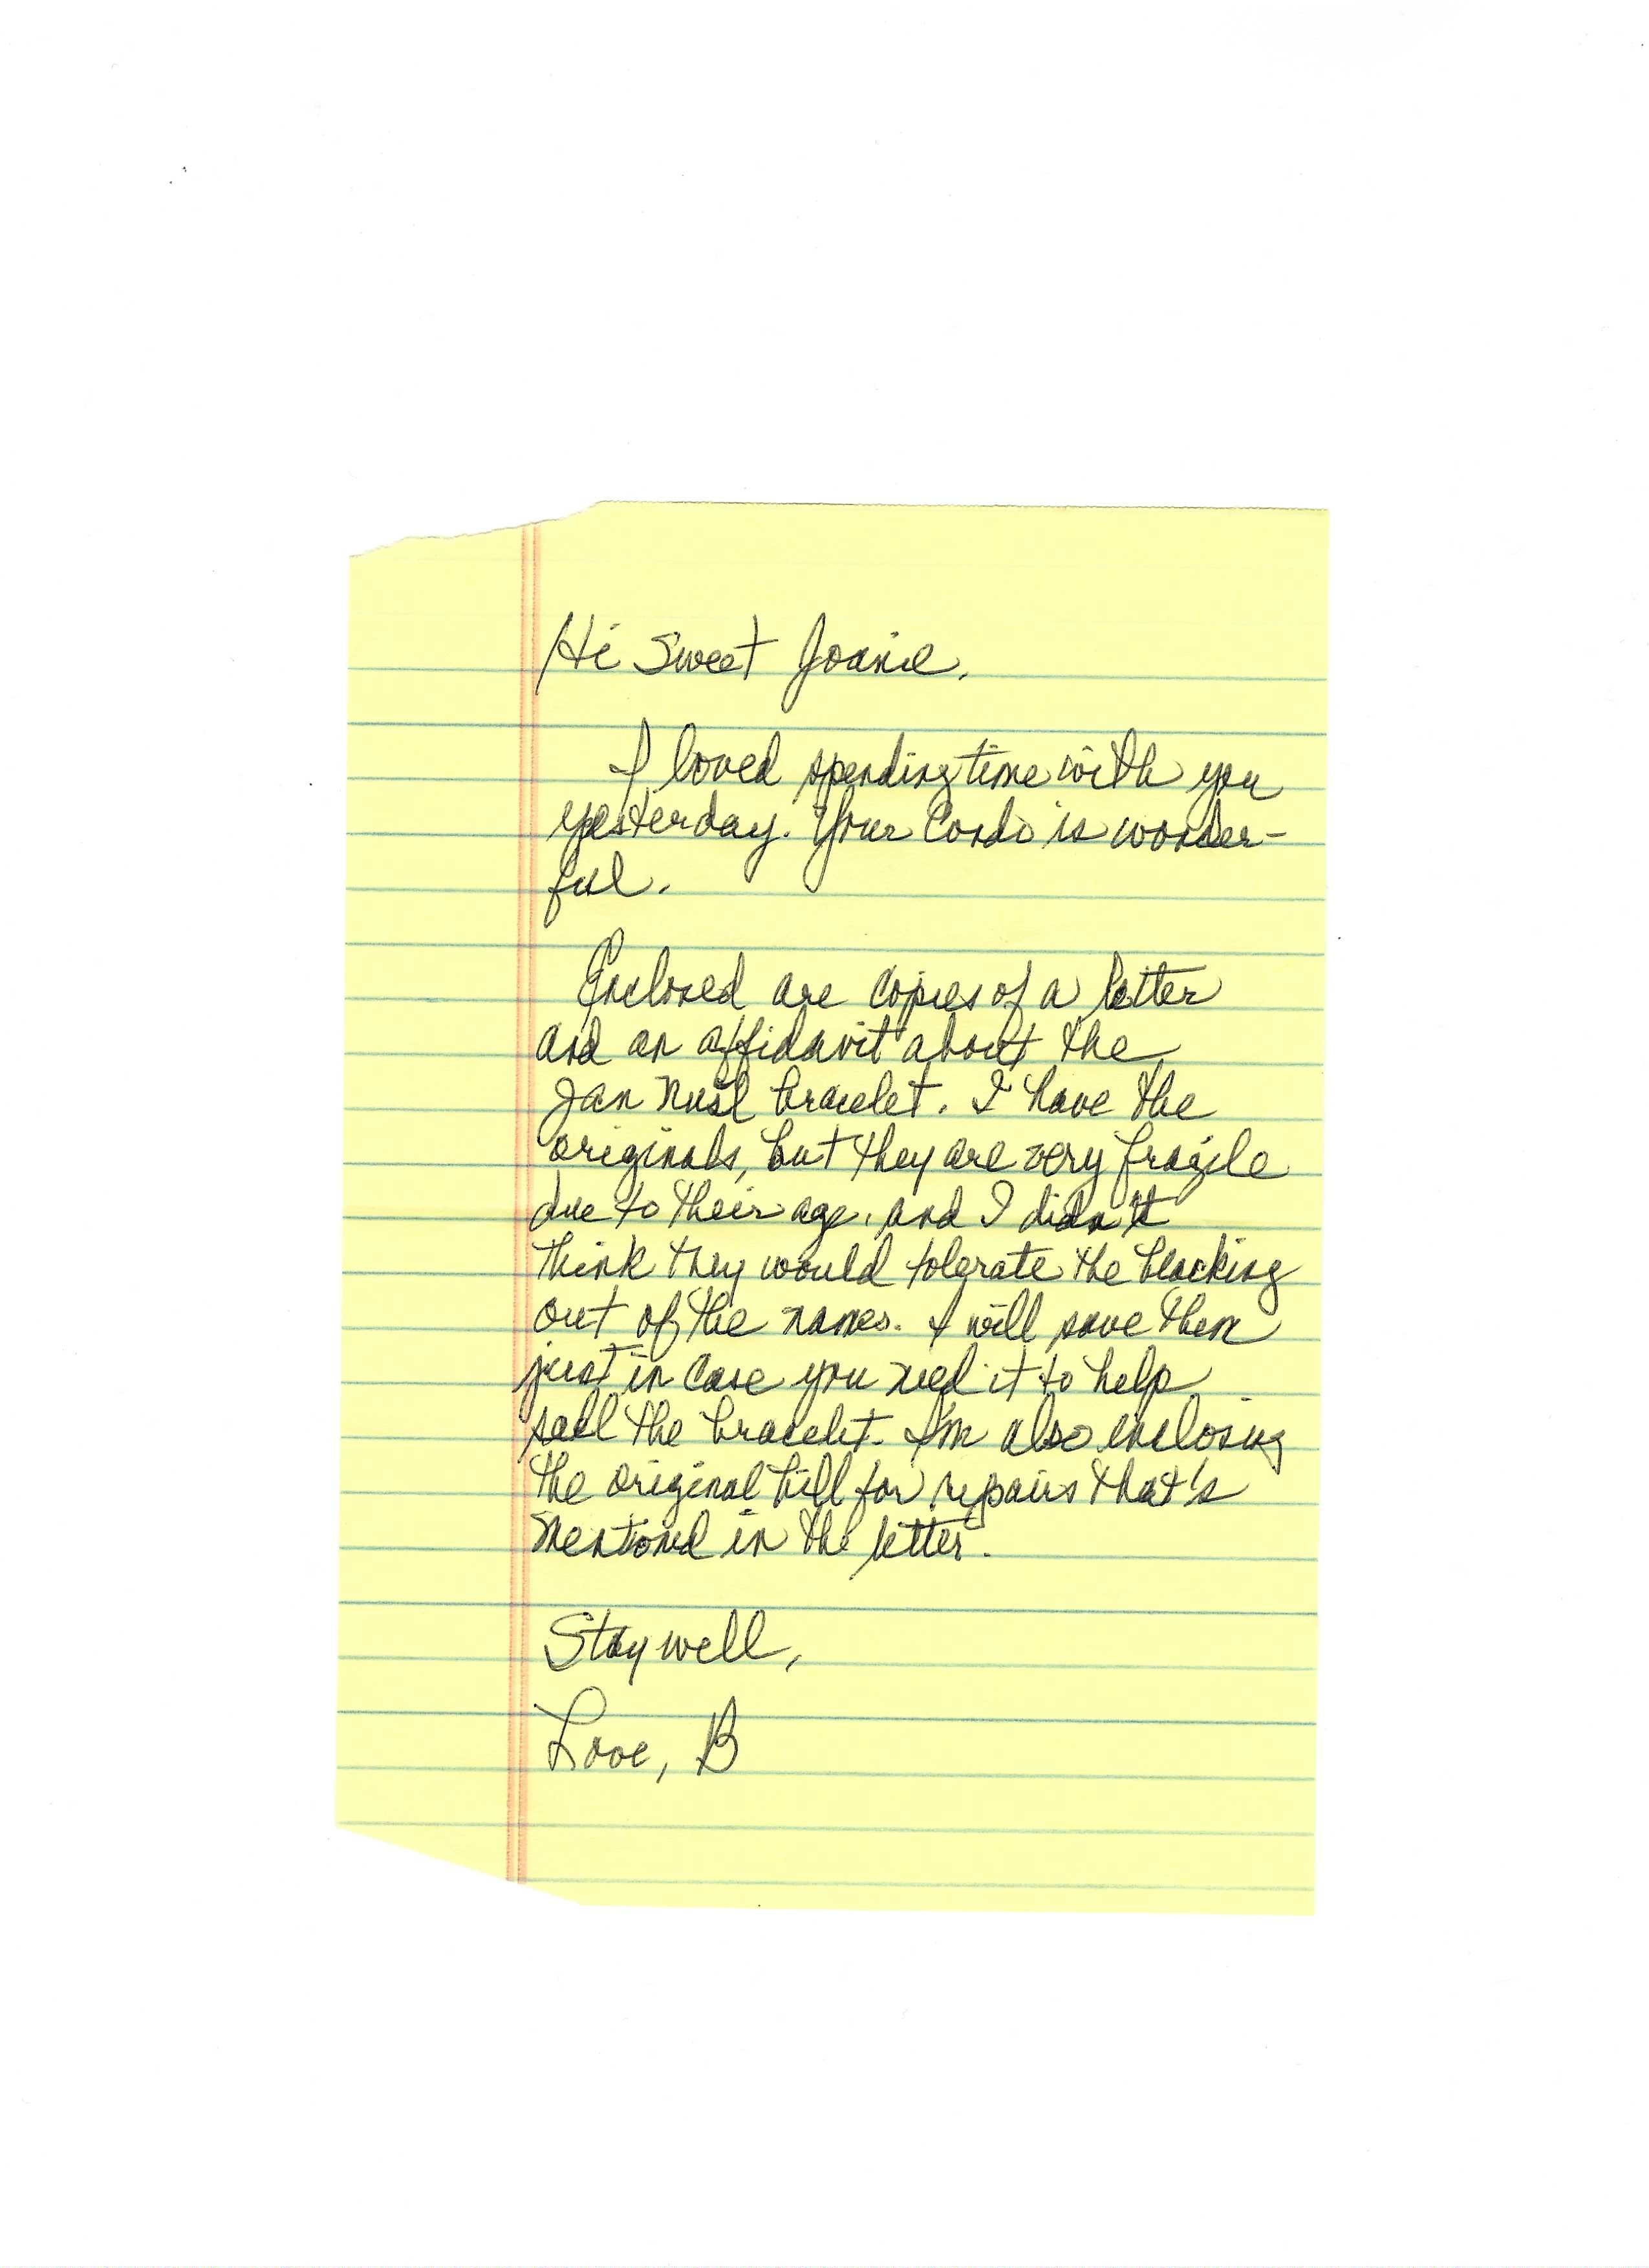 Hi Sweet Joanie,
I loved spending time with you
yesterday. Your Condo is wonder-
ful.
Enclosed are copies of a letter
and an affidavit about the
Jan bracelet. I have the
originals, but they are very fragile
due to their age, and I didn't
think they would tolerate the blacking
out of the names. I will save them
just in case you need it to help
sell the bracelet. I'm also enclosing
the original bill for repairs that's
mentoned in the letter.
Stay well,
Love, B